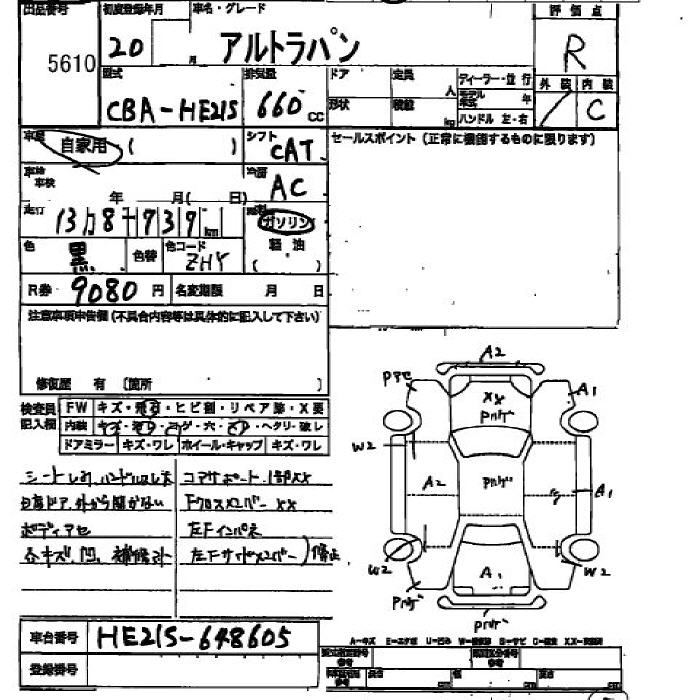 出品番号 初度登録年月 車名・グレード 評価点
5610 20 月 アルトラパン R
型式 排気量 ドア 定員 人 ディーラー・並行 外装 内装
CBA-HE21S 660 cc 形状 積載 kg モデル年式 年 C
ハンドル 左・右
車歴 自家用 ( ) シフト CAT セールスポイント (正常に機能するものに限ります)
車検 年 月( 日) 冷房 AC
走行 13万8千939km 燃料 ガソリン
色 黒 色替 色コード ZHY 軽油 ( )
R券 9080 円 名変期限 月 日
注意事項申告欄 (不具合内容等は具体的に記入して下さい)
修復歴 有 〔箇所 〕
検査員記入欄 FW キズ・飛石・ヒビ割・リペア跡・X要
内装 キズ・コゲ・穴・ヘタリ・破レ
ドアミラー キズ・ワレ ホイール・キャップ キズ・ワレ
コアサポート
ドア、外から開かない Fクロスメンバー XX
ボディアセ 左Fインパネ
各キズ、凹、補修跡 左Fサイドメンバー 修正
A2
アセ A1
XX
W2
A2 A1
W2 A1 W2
車台番号 HE21S-648605
A-キズ U-凹み
登録番号